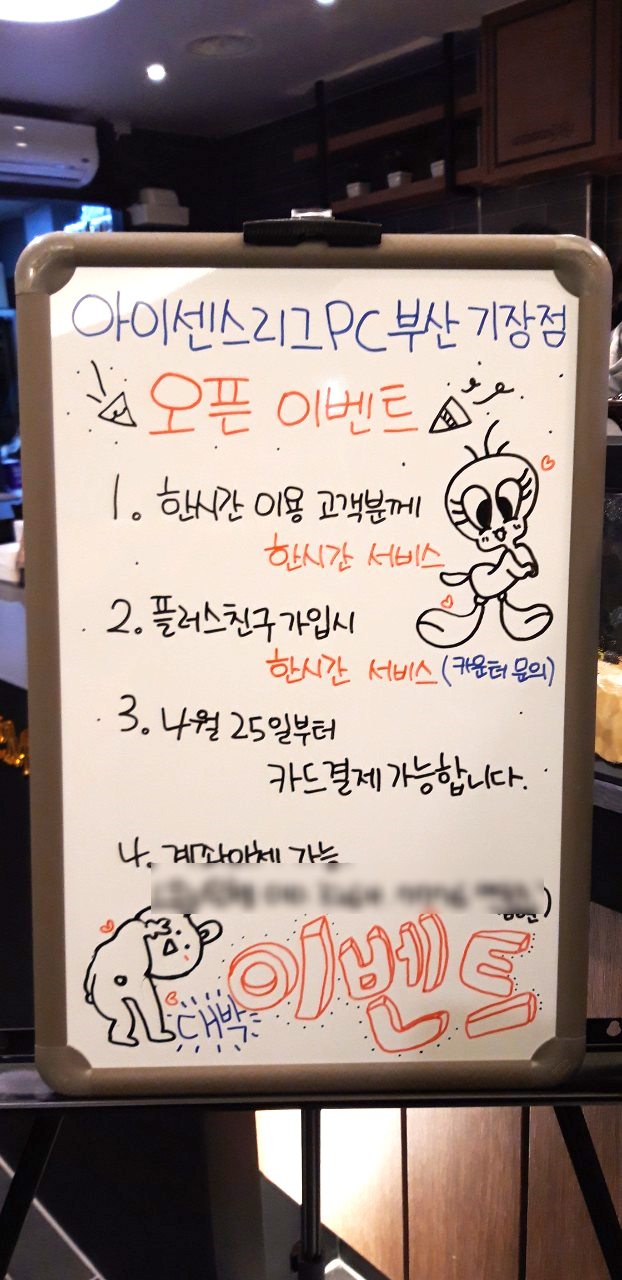 아이센스리그PC 부산 기장점
오픈 이벤트
1. 한시간 이용 고객분께
한시간 서비스
2. 플러스친구 가입시
한시간 서비스 (카운터 문의)
3. 4월 25일부터
카드결제 가능합니다.
4. 계좌이체 가능
대박
이벤트